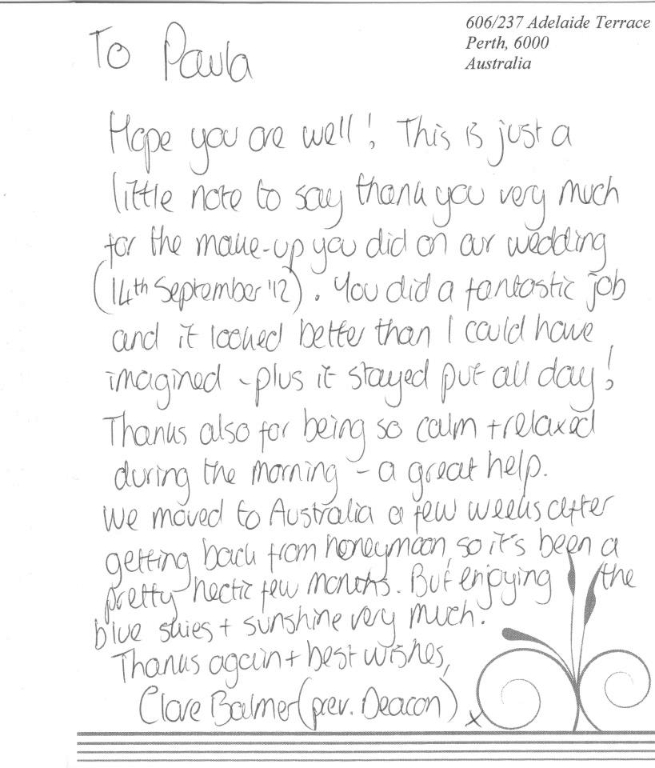 606/237 Adelaide Terrace
Perth, 6000
Australia
To Paula
Hope you are well! This is just a
little note to say thank you very much
for the make-up you did on our wedding
(14th September '12). You did a fantastic job
and it looked better than I could have
imagined - plus it stayed put all day!
Thanks also for being so calm + relaxed
during the morning - a great help.
We moved to Australia a few weeks after
getting back from honeymoon, so it's been a
pretty hectic few months. But enjoying the
blue skies + sunshine very much.
Thanks again + best wishes,
Clare Balmer (prev. Deacon) x